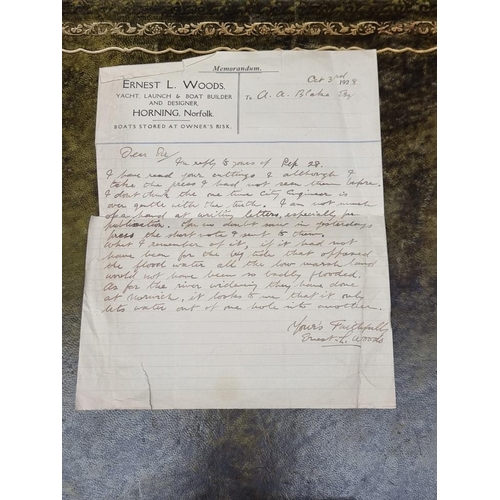 Memorandum.
Oct 3rd 1928
ERNEST L. WOODS,
To A. A. Blake Esq
YACHT, LAUNCH & BOAT BUILDER
AND DESIGNER,
HORNING, Norfolk.
BOATS STORED AT OWNER'S RISK.
Dear Sir/
In reply to yours of Sep 28.
I have read your cuttings & although I
take the press I had not seen them before.
I dont think the City Engineer is
over gentle with the truth. I am not much
of a hand at writing letters, especially for
publication. You no doubt saw in yesterdays
press the short note I sent to them,
What I remember of it, if it had not
have been for the big tide that opposed
the flood water all the low marsh land
would not have been so badly flooded.
As for the river widening they have done
at Norwich, it looks to me that it only
lets water out of one hole into another.
Yours Faithfully
Ernest L. Woods